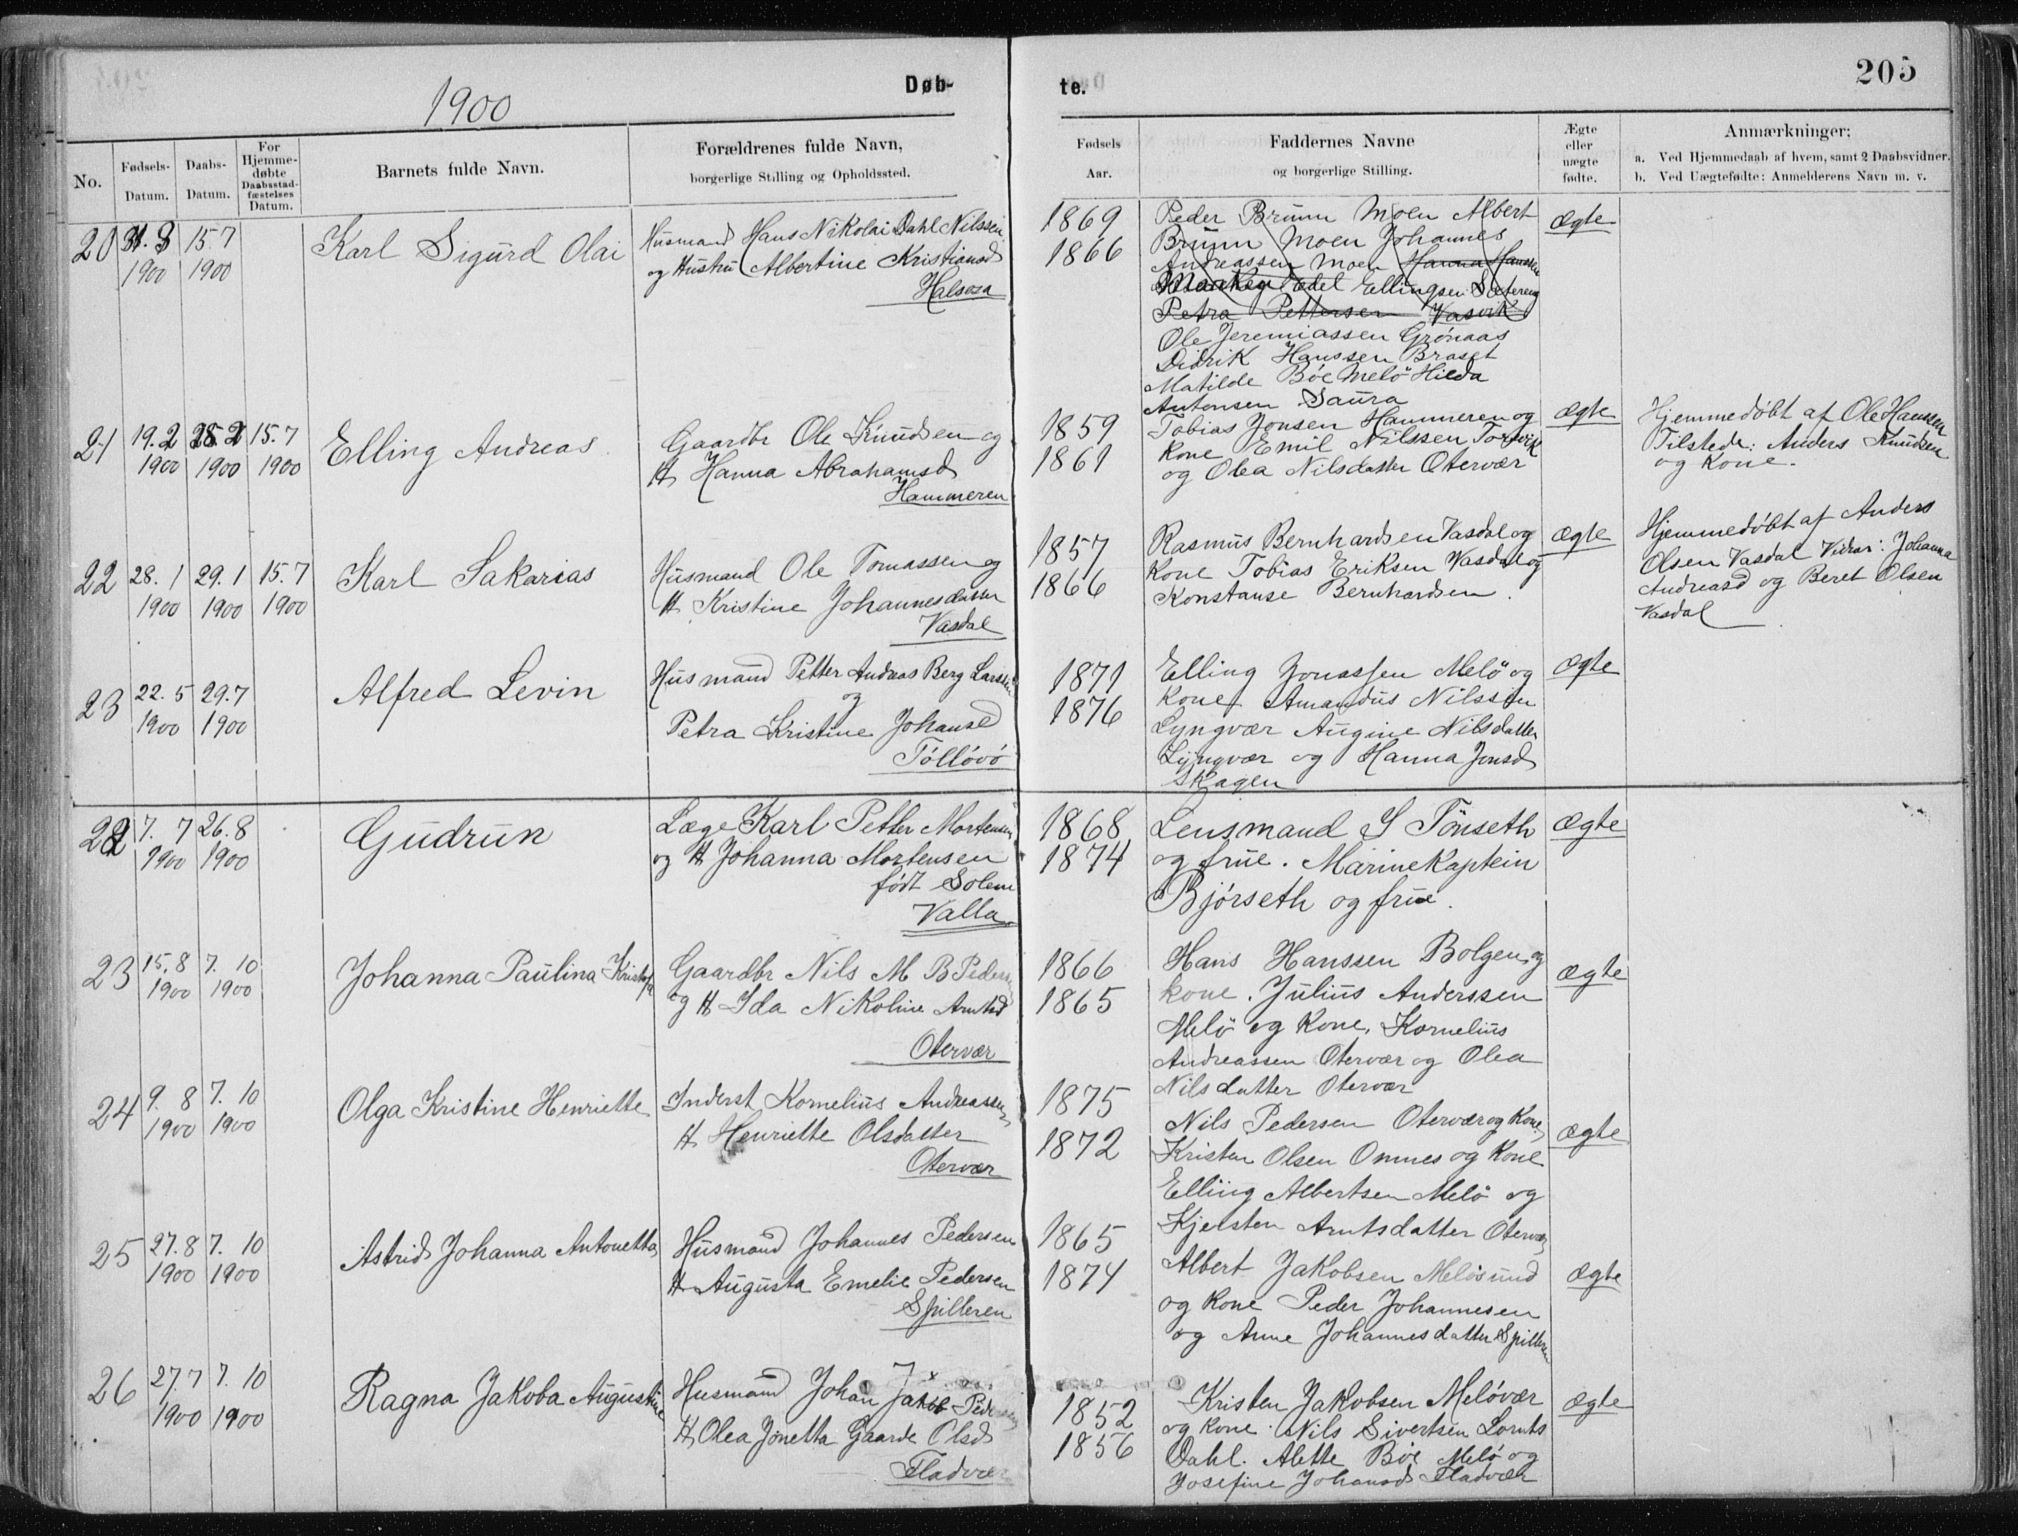 205
1900
Døb-
te.
No.
Fødsels-
Datum.
Daabs-
Datum.
For
Hjemme-
døbte
Daabsstad-
fæstelses
Datum.
Barnets fulde Navn.
Forældrenes fulde Navn,
borgerlige Stilling og Opholdssted.
Fødsels
Aar.
Faddernes Navne
og borgerlige Stilling.
Ægte
eller
uægte
fødte.
Anmærkninger:
a. Ved Hjemmedaab af hvem, samt 2 Daabsvidner.
b. Ved Uægtefødte: Anmelderens Navn m. v.
20
3
1900
15.7
1900
Karl Sigurd Olai
Husmand Hans Nikolai Dahl Nilssen
og Hustru Albertine Kristiansd
Halsosa
1869
1866
Peder Brunn Moen Albert
Brunn Moen Johannes
Andreassen Moen Hanna Hanssen
Edel Ellingsen
Petra Pettersen Vasvik
Ole Jeremiassen Grönaas
Didrik Hanssen Braset
Matilde Böe Melö Hilda
Antonsen Saura
Ægte
21
19.2
1900
25 2
1900
15.7
1900
Elling Andreas
Gaardbr Ole Knudsen og
H Hanna Abrahamsd
Hammeren
1859
1861
Tobias Jonsen Hammeren og
Kone Emil Nilssen Torsvik
og Olea Nilsdatter Otervær
Ægte
Hjemmedöbt af Ole Hanssen
Tilstede: Anders Knudsen
og Kone.
22
28.1
1900
29.1
1900
15.7
1900
Karl Sakarias
Husmand Ole Tomassen og
H Kristine Johannesdatter
Vasdal
1857
1866
Rasmus Bernhardsen Vasdal og
Kone Tobias Eriksen Vasdal og
Konstanse Bernhardsen.
Ægte
Hjemmedöbt af Anders
Olsen Vasdal Vidner: Johanna
Andreasd og Beret Olsen
Vasdal
23
22.5
1900
29.7
1900
Alfred Levin
Husmand Petter Andreas Berg Larssen
og
Petra Kristine Johansd
Töllövö
1871
1876
Elling Jonassen Melö og
Kone. Amandus Nilssen
Lyngvær Augine Nilsdatter
Lyngvær og Hanna Jonsd
Skagen
Ægte
22
7. 7
1900
26.8
1900
Gudrun
Læge Karl Petter Mortensen
og H Johanna Mortensen
födt Solem
Valla
1868
1874
Lensmand S Tönseth
og frue. Marinekaptein
Björseth og frue.
Ægte
23
15.8
1900
7. 10
1900
Johanna Paulina
Gaardbr Nils M B
og H Ida Nikoline Arntsd
Otervær
1866
1865
Hans Hanssen Bolgen og
kone. Julius Anderssen
Melö og Kone. Kornelius
Andreassen Otervær og Olea
Nilsdatter Otervær
Ægte
24
9. 8
1900
7. 10
1900
Olga Kristine Henriette
Inderst Kornelius Andreassen
H Henriette Olsdatter
Otervær
1875
1872
Nils Pedersen Otervær og Kone
Kristen Olsen Omnes og Kone
Elling Albertsen Melö og
Kjersten Arntsdatter Otervær
Ægte
25
27.8
1900
7. 10
1900
Astrid Johanna Antonetta
Husmand Johannes Pedersen
H Augusta Emelie Pedersen
Spilleren
1865
1874
Albert Jakobsen Melösund
og Kone Peder Johannesen
og Anne Johannesdatter Spilleren
Ægte
26
27.7
1900
7. 10
1900
Ragna Jakoba Augustine
Husmand Johan Jakob
H Olea Jonetta Gaarde Olsd
Fladvær
1852
1856
Kristen Jakobsen Melövær
og Kone. Nils Sivertsen Lornts
Dahl. Alette Böe Melö og
Josefine Johansd Fladvær
Ægte